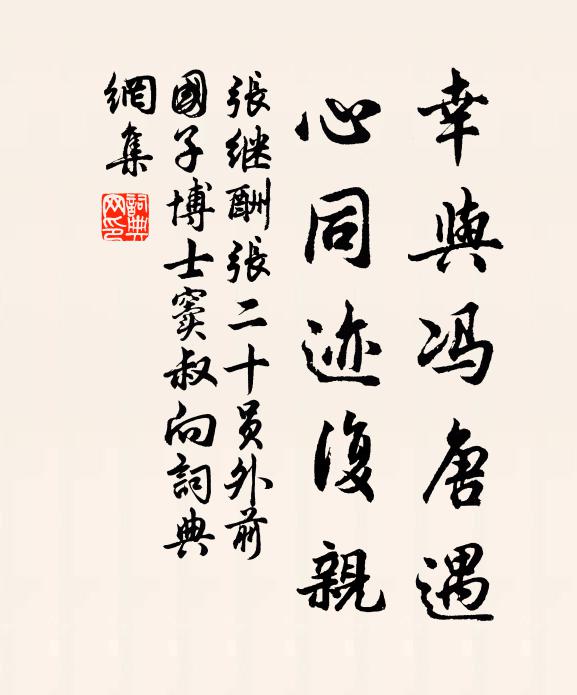 幸與冯唐遇
心同迹復親
張继酬張二十员外前
國子博士窦叔向詞典
網集
詞典
网印